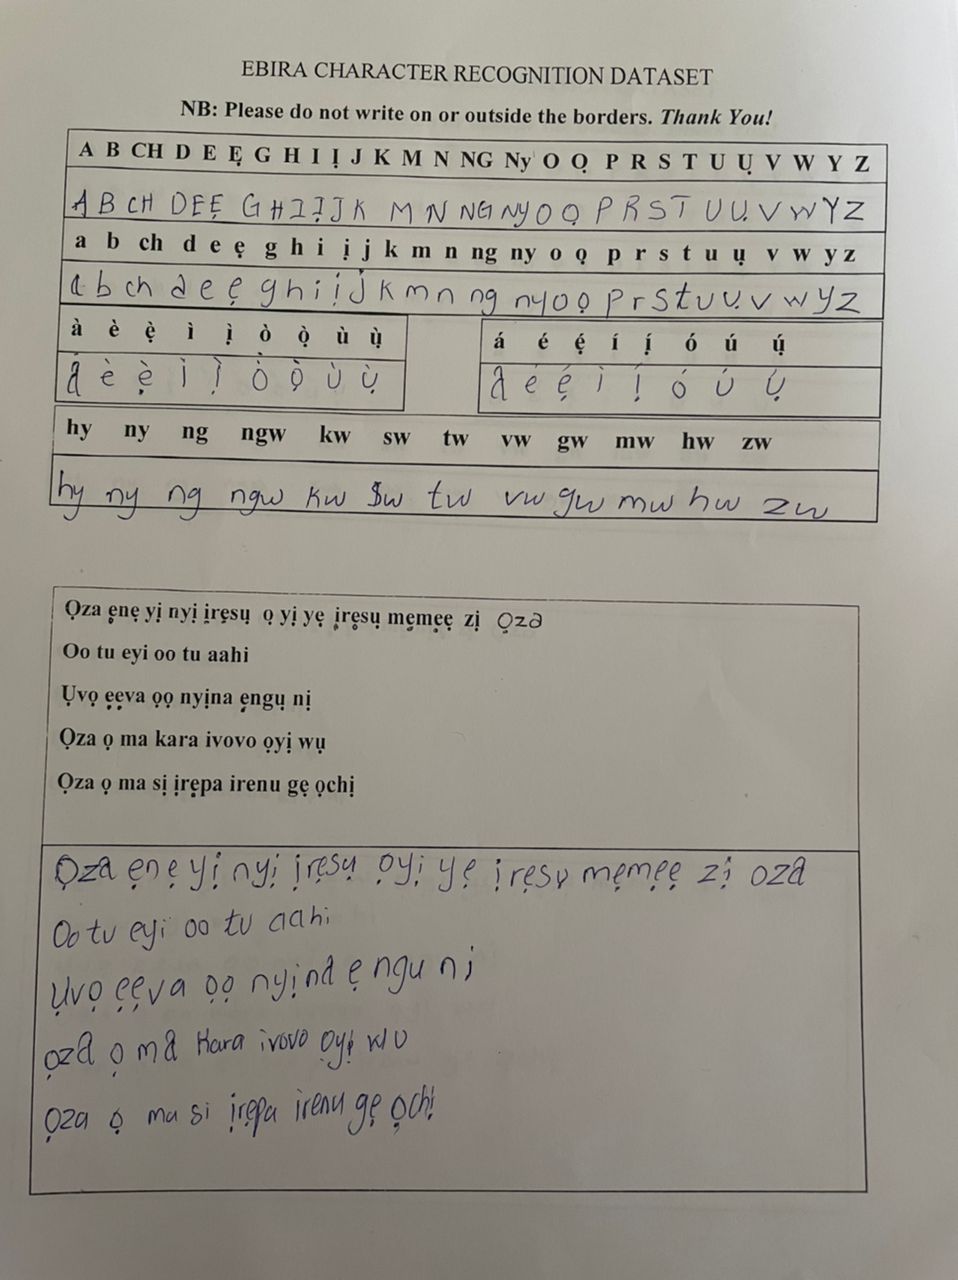 EBIRA CHARACTER RECOGNITION DATASET
NB: Please do not write on or outside the borders. Thank You!
A B CH D E Ẹ G H I Ị J K M N NG Ny O Ọ P R S T U Ụ V W Y Z
A B CH D E Ẹ G H I Ị J K M N NG NY O Ọ P R S T U Ụ V W Y Z
a b ch d e ẹ g h i ị j k m n ng ny o ọ p r s t u ụ v w y z
a b ch d e ẹ g h i ị j k m n ng ny o ọ p r s t u ụ v w y z
à è ẹ̀ ì ị̀ ò ọ̀ ù ụ̀ á é ẹ́ í ị́ ó ú ụ́
à è ẹ̀ ì ị̀ ò ọ̀ ù ụ̀ á é ẹ́ ì ị́ ó ú ụ́
hy ny ng ngw kw sw tw vw gw mw hw zw
hy ny ng ngw kw sw tw vw gw mw hw zw
Ọza ẹnẹ yị nyị ịrẹsụ ọ yị yẹ ịrẹsụ mẹmẹẹ zị Ọza
Oo tu eyi oo tu aahi
Ụvọ ẹẹva ọọ nyịna ẹngụ nị
Ọza ọ ma kara ivovo ọyị wụ
Ọza ọ ma sị ịrẹpa irenu gẹ ọchị
Ọza ẹnẹ yị nyị ịrẹsụ ọyị yẹ ịrẹsụ mẹmẹẹ zị oza
Oo tu eyi oo tu aahi
Ụvọ ẹẹva ọọ nyịna ẹ ngu nị
ọza ọ ma Kara ivovo ọyị wu
Ọza ọ ma si ịrẹpa irenu gẹ ọchị